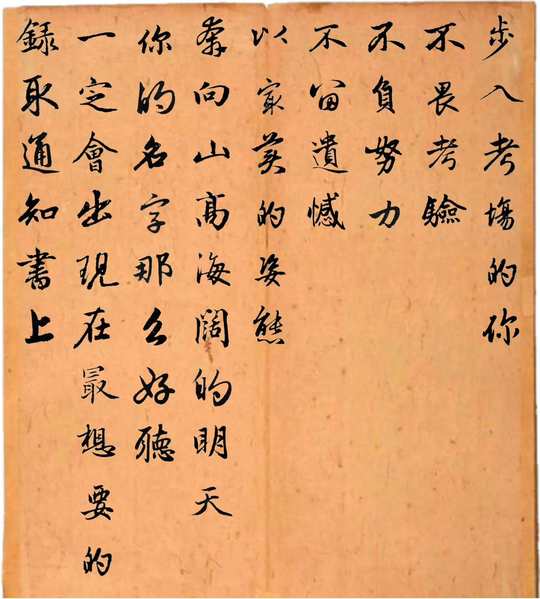 步入考場的你
不畏考驗
不負努力
不留遺憾
以最美的姿態
奔向山高海闊的明天
你的名字那么好聽
一定會出現在最想要的
錄取通知書上